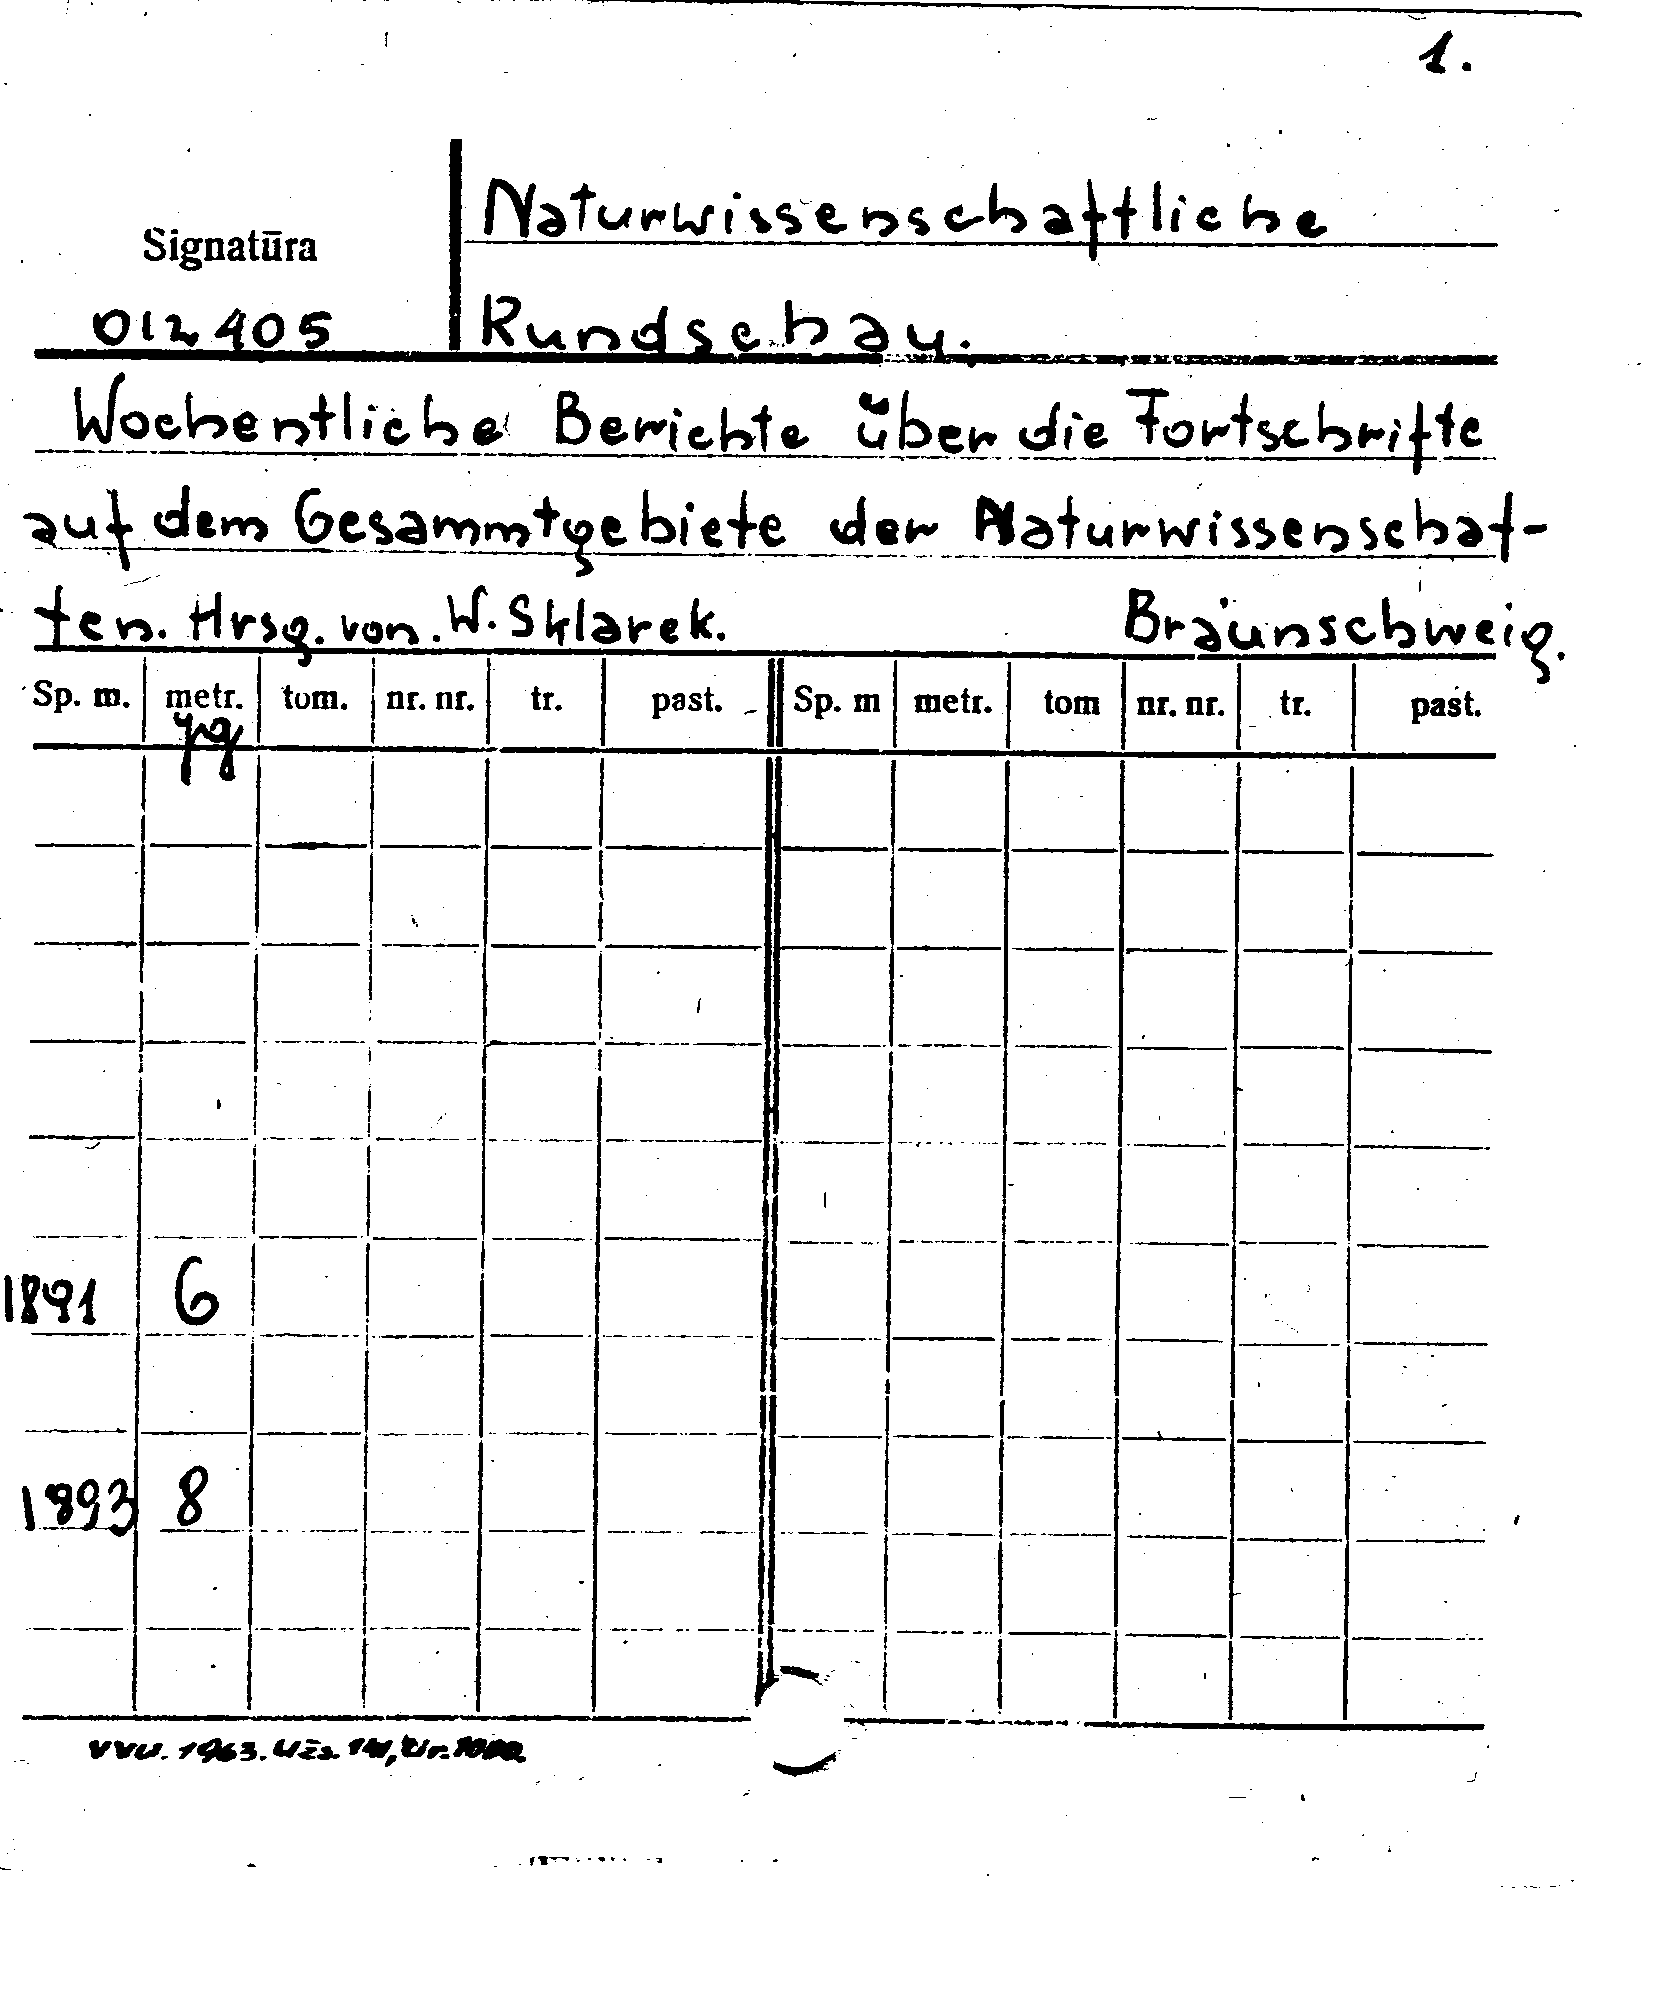 1.
Naturwissenschaftliche
Signatūra
012405
Rundschau.
Wochentliche Berichte über die Fortschrifte
auf dem Gesammtgebiete der Naturwissenschaf-
ten. Hrsg. von W. Sklarek. Braunschweig.
Sp. m. metr. tom. nr. nr. tr. past. Sp. m metr. tom nr. nr. tr. past.
yg
1891 6
1893 8
VVU. 1963. Užs.